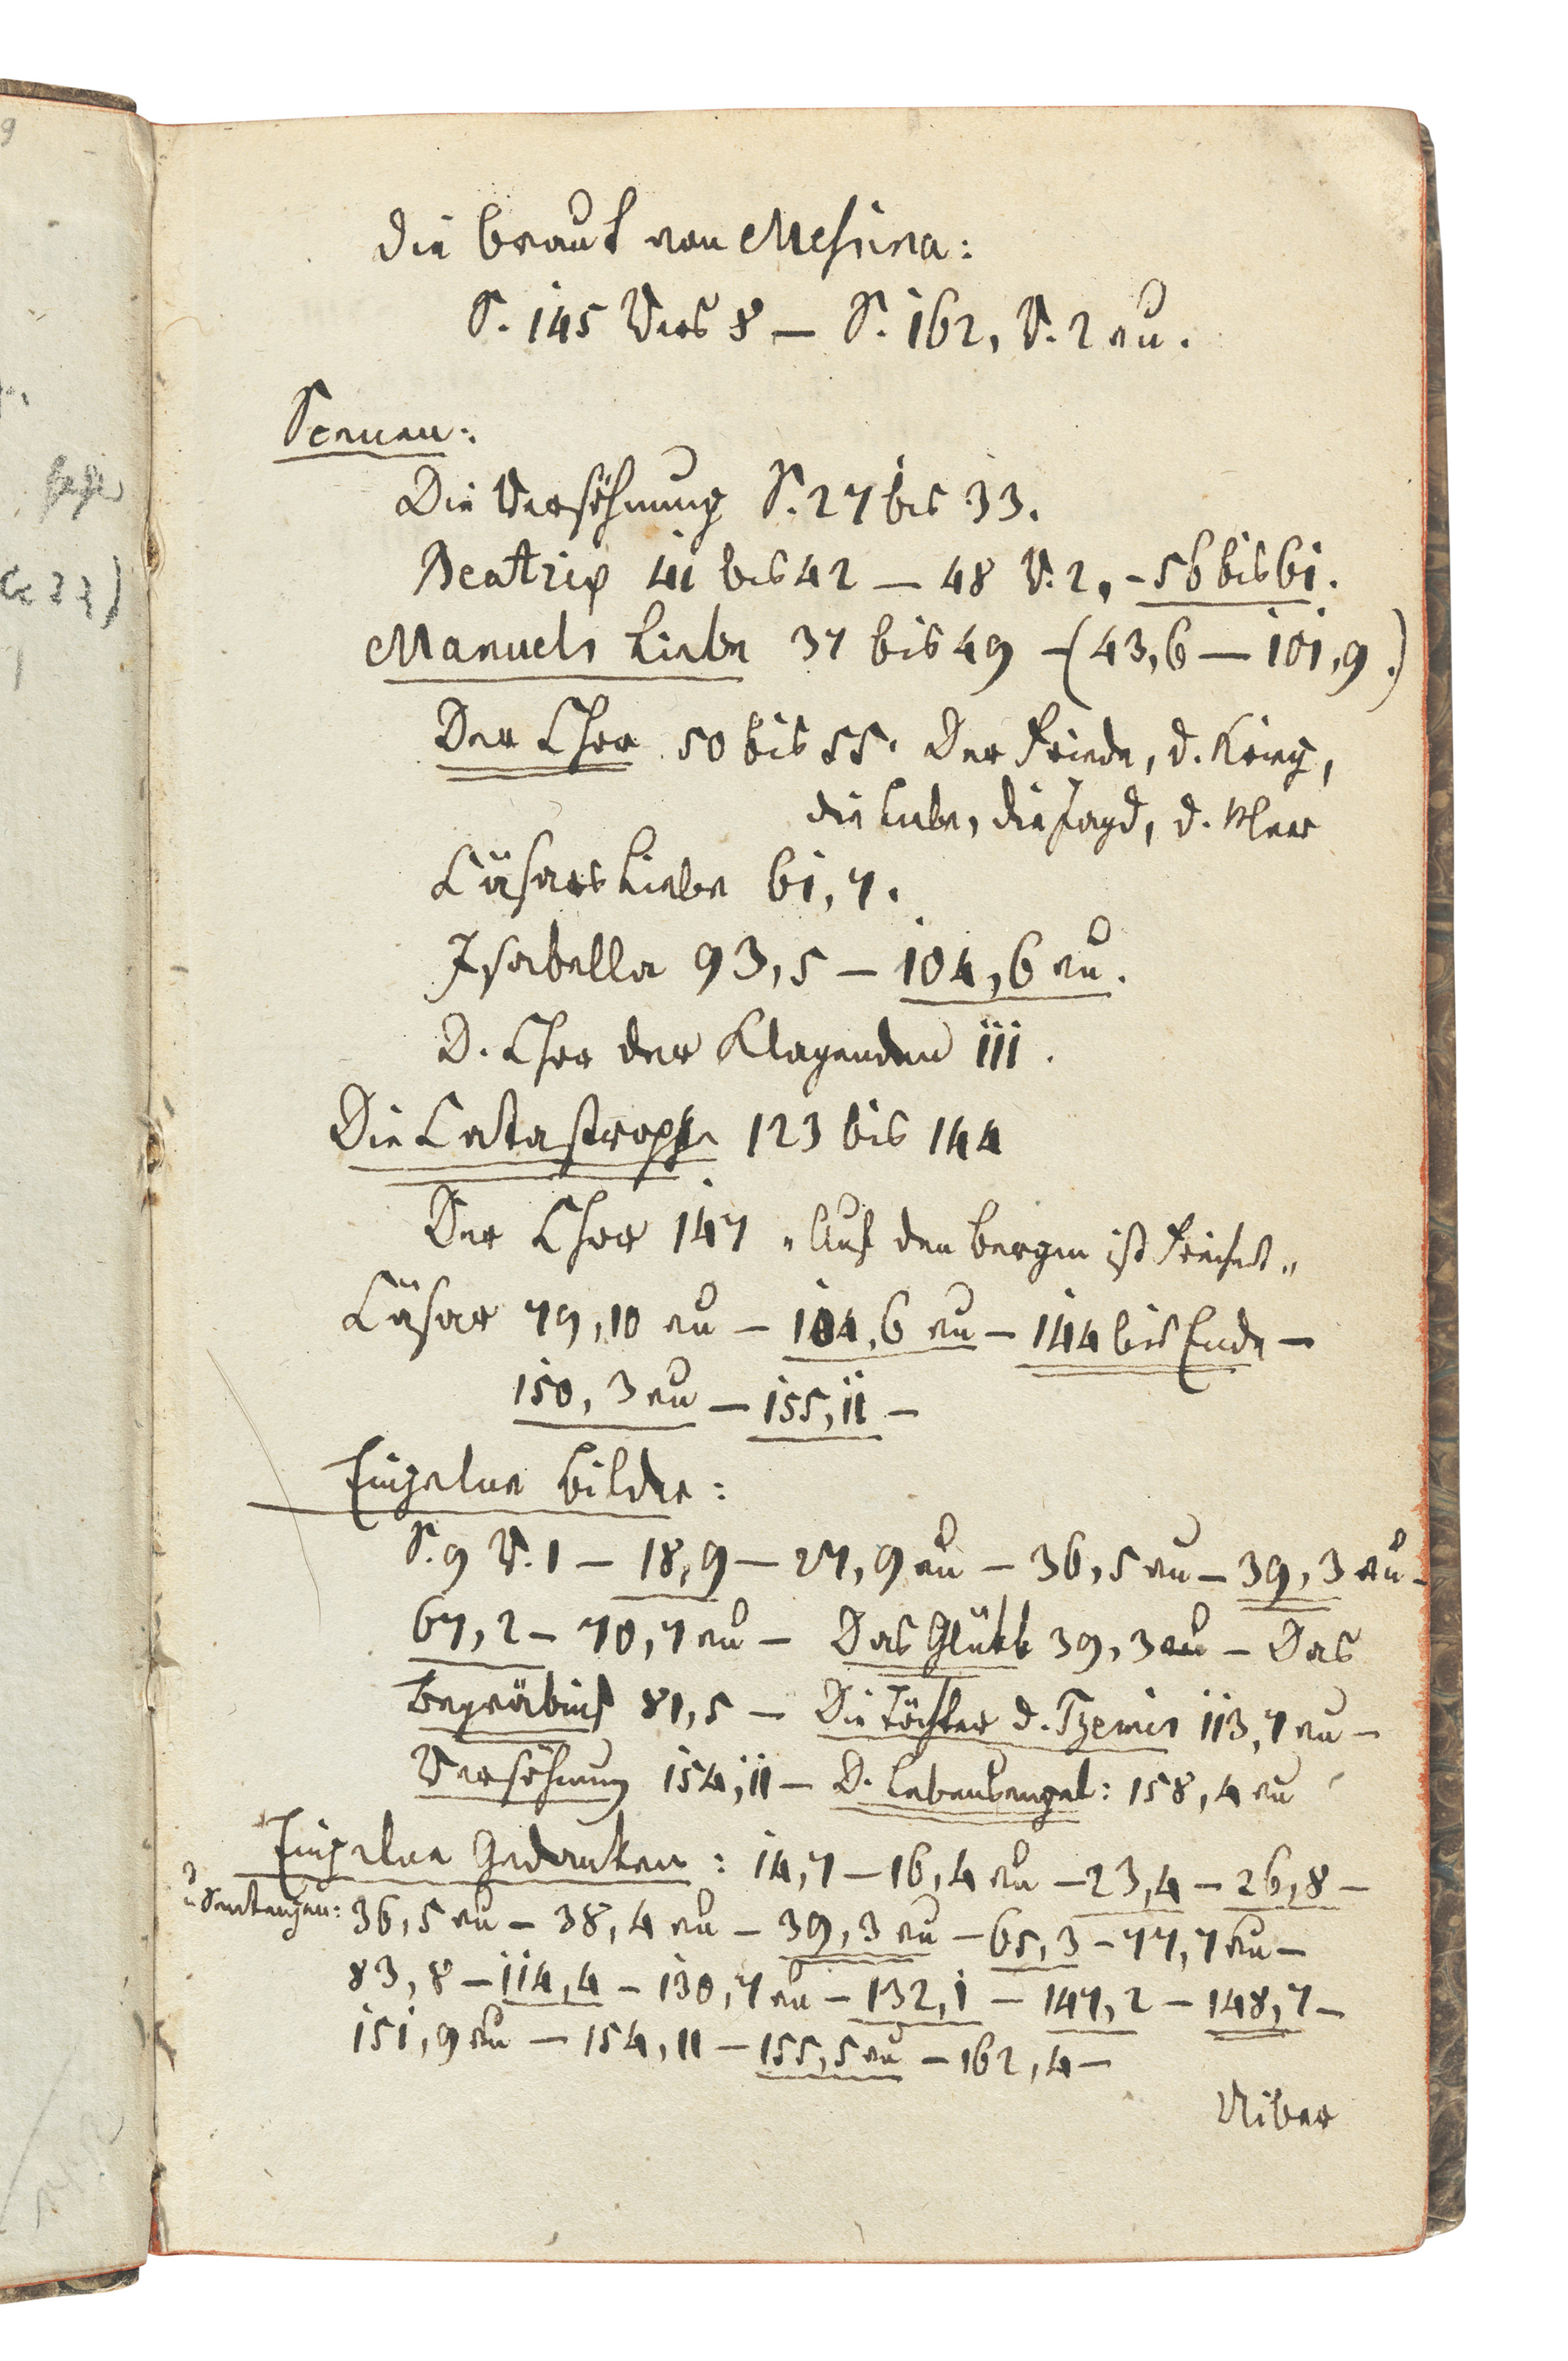 9
die Braut von Messina:
S. 145 Vers 8 — S. 162, V. 2 vu.
Scenen:
Die Versöhnung S. 27 bis 33.
Beatrix 41 bis 42 — 48 V. 2, - 56 bis 61.
Manuels Liebe 37 bis 49 - (43,6 — 101,9.)
Der Chor 50 bis 55. Der Friede, d. Krieg,
die Liebe, die Jagd, d. Meer
Cäsars Liebe 61,7.
Isabella 93,5 — 104,6 vu.
D. Chor der Klagenden 111.
Die Catastrophe 123 bis 144
Der Chor 147 „Auf den Bergen ist Freiheit„
Cäsar 79,10 vu — 104,6 vu — 144 bis Ende —
150,3 vu — 155,11 —
Einzelne Bilder:
S. 9 V. 1 — 18,9 — 27,9 vu — 36,5 vu — 39,3 vu -
67,2 — 70,7 vu — Das Glükk 39,3 vu — Das
Begräbniß 81,5 — Die Töchter d. Themis 113,7 vu —
Versöhnung 154,11 — D. Lebensengel: 158,4 vu
Einzelne Gedanken: 14,7 — 16,4 vu — 23,4 — 26,8 —
u Sentenzen: 36,5 vu — 38,4 vu — 39,3 vu — 65,3 — 77,7 vu —
83,8 — 114,4 — 130,7 vu — 132,1 — 147,2 — 148,7 —
151,9 vu — 154,11 — 155,5 vu — 162,4 —
Ueber